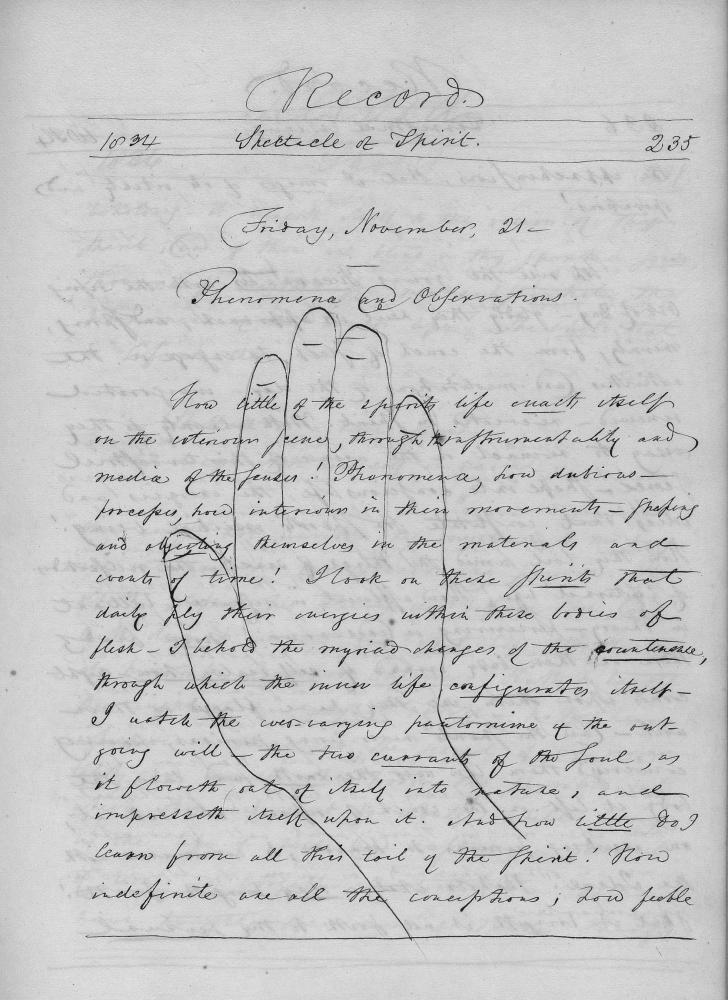 Record.
1834 Spectacle of Spirit. 235
Friday, November, 21 —
Phenomena and Observations.
How little of the spirits life enacts itself
on the exterious scene, through th instrumentality and
media of the senses! Phenomena, how dubious —
processes, how interious in their movements — shaping
and objecting themselves in the materials and
events of time! I look on these Spirits that
daily ply their energies within these bodies of
flesh — I behold the myriad changes of the countenance,
through which the inner life configurates itself —
I watch the ever-varying pantomime of the out-
going will — the two currants of the Soul, as
it floweth out of itself into nature, and
impresseth itself upon it. And how little do I
learn from all this toil of the Spirit! How
indefinite are all the conceptions; how feeble